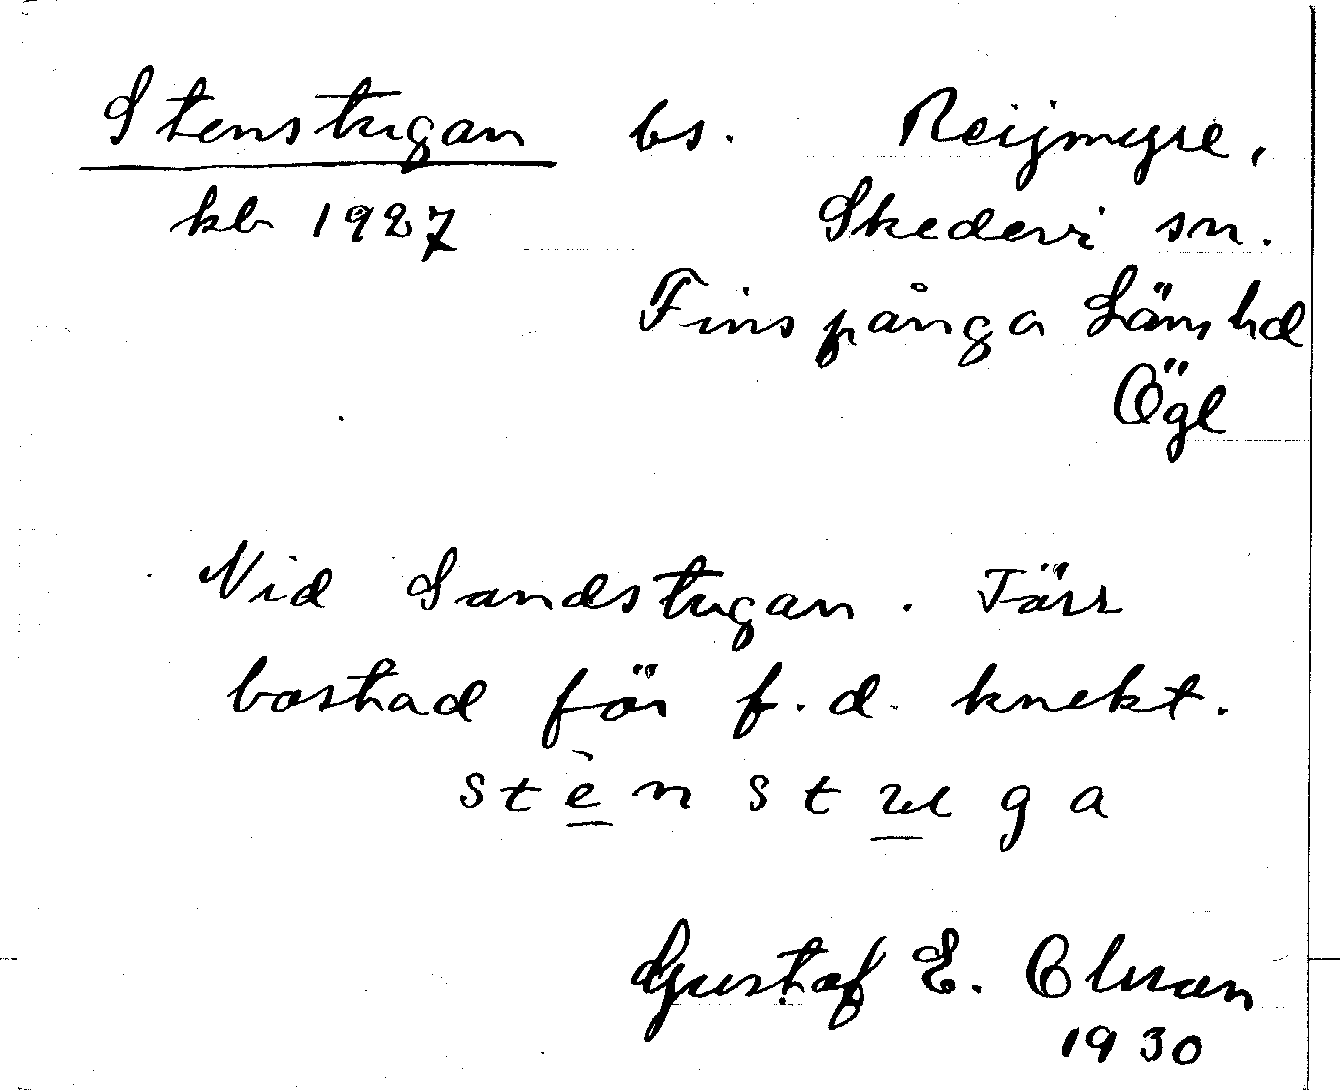 Stenstugan bs. Reijmyre,
kb 1927 Skedevi sn.
Finspånga Läns hd
Ögl
Vid Sandstugan. Förr
bostad för f.d. knekt.
stènstuga
Gustaf E. Olsson
1930